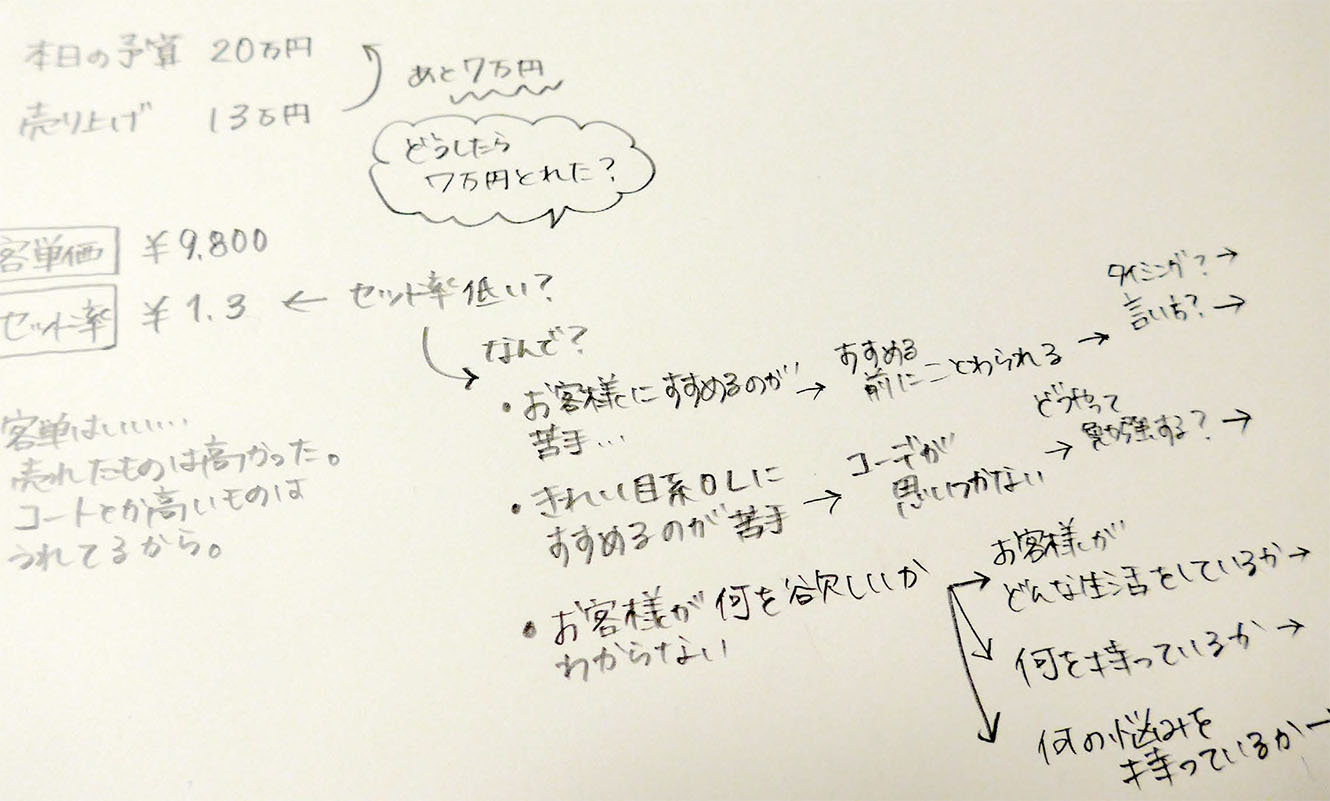 本日の予算 20万円
売り上げ 13万円
あと7万円
どうしたら
7万円とれた?
客単価 ¥9,800
セット率 ¥1.3 ← セット率低い?
なんで?
・お客様にすすめるのが
苦手…
→ すすめる
前にことわられる
→ タイミング?→
言い方?→
・きれい目系OLに
すすめるのが苦手
→ コーデが
思いつかない
→ どうやって
勉強する?→
・お客様が何を欲しいか
わからない
お客様が
どんな生活をしているか→
何を持っているか→
何の悩みを
持っているか→
客単はいい…
売れたものは高かった。
コートとか高いものは
うれてるから。